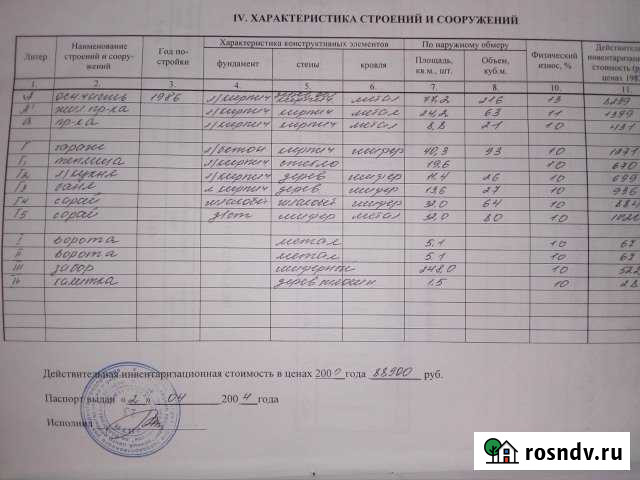 IV. ХАРАКТЕРИСТИКА СТРОЕНИЙ И СООРУЖЕНИЙ
Литер Наименование строений и соору- жений Год по- стройки Характеристика конструктивных элементов По наружному обмеру Физический износ, % Действител инвентаризац стоимость (р
фундамент стены кровля Площадь, кв.м., шт. Объем, куб.м. ценах 198
1. 2. 3. 4. 5. 6. 7. 8. 10. 11.
А 1986 л/кирпич кирпич метал 216 13
А' жил пр-ка л/кирпич кирпич метал 24,2 63 11
а пр-ка л/кирпич кирпич метал 8,8 21 10 431
Г гараж л/бетон кирпич шифер 40,3 93 10 1271
Г1 теплица л/кирпич стекло 19,6 10 670
Г2 л/кухня л/кирпич дерев шифер 11,4 26 10 699
Г3 баня л кирпич дерев шифер 13,6 27 10 936
Г4 сарай шлакобет шлакобет шифер 32,0 64 10 884
Г5 сарай шифер метал 32,0 80 10
I ворота метал 5.1 10 67
II ворота метал 5.1 10 67
III забор шиферный 248,0 10 522
IV калитка дерев 1.5 10 28
Действительная инвентаризационная стоимость в ценах 200 года 88900 руб.
Паспорт выдан « 2 » 04 2004 года
Исполнил
rosndv.ru